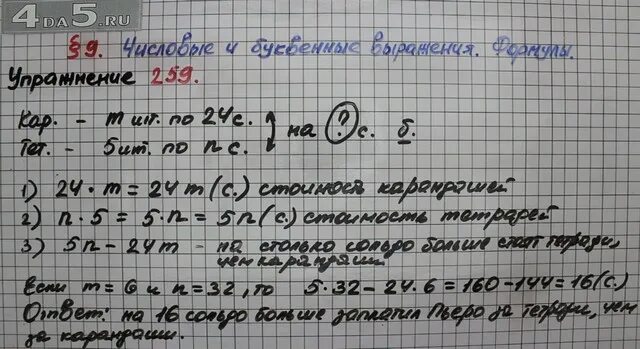 4DA5.RU
§9. Числовые и буквенные выражения. Формулы.
Упражнение 259.
Кар. - m шт. по 24 с.
Тет. - 5 шт. по n с.
на ? с. б.
1) 24 · m = 24m (с.) стоимось карандашей
2) n · 5 = 5 · n = 5n (с.) стоимость тетрадей
3) 5n - 24m - на столько сольдо больше стоят тетради,
чем карандаши
Если m = 6 и n = 32, то 5·32 - 24·6 = 160 - 144 = 16 (с.)
Ответ: на 16 сольдо больше заплатил Пьеро за тетради, чем
за карандаши.